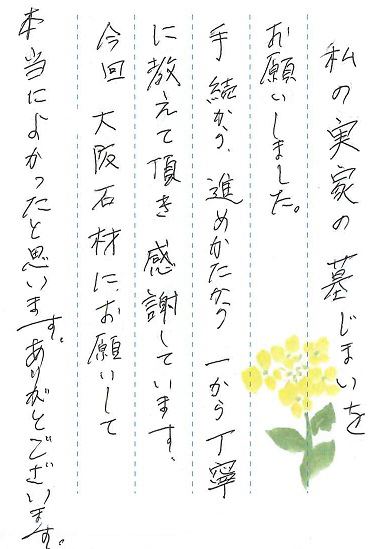 私の実家の墓じまいを
お願いしました。
手続から、進めかたから 一から丁寧
に教えて頂き 感謝しています、
今回 大阪石材に、お願いして
本当によかったと思います。ありがとございます。